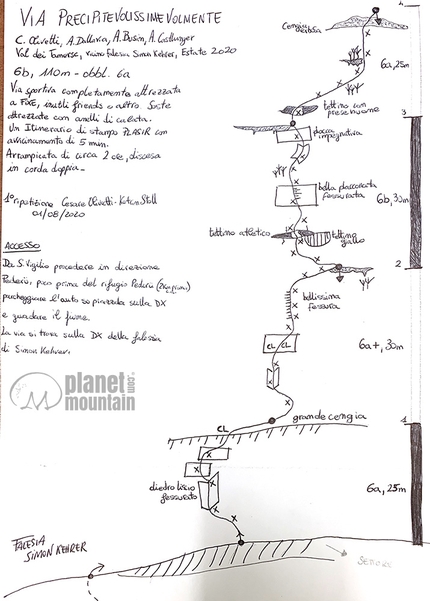 VIA PRECIPITEVOLISSIMEVOLMENTE
C. Olivetti, A. Dallavia, A. Busin, A. Costlunger
Val dei Tamersc, vicino falesia Simon Kehrer, Estate 2020
6b, 110m - obbl. 6a
Via sportiva completamente attrezzata
a FIXE, inutili friends o altro. Soste
attrezzate con anelli di calata.
Un Itinerario di stampo PLAISIR con
avvicinamento di 5 min.
Arrampicata di circa 2 ore, discesa
in corda doppia.
1ª ripetizione Cesare Olivetti -
01/08/2020
ACCESSO
Da S. Vigilio procedere in direzione
Pederü, poco prima del rifugio Pederü
parcheggiare l'auto su piazzola sulla DX
e guadare il fiume.
La via si trova sulla DX della falesia
di Simon Kehrer.
planet
mountain
.com
Cengia
4
6a, 25m
tettino con
prese buone
3
placca
impegnativa
bella placconata
fessurata
6b, 30m
tettino atletico
tettino
giallo
2
bellissima
fessura
CL CL
6a+, 30m
grande cengia
1
CL
diedro liscio
fessurato
6a, 25m
FALESIA
SIMON KEHRER
SENTIERO